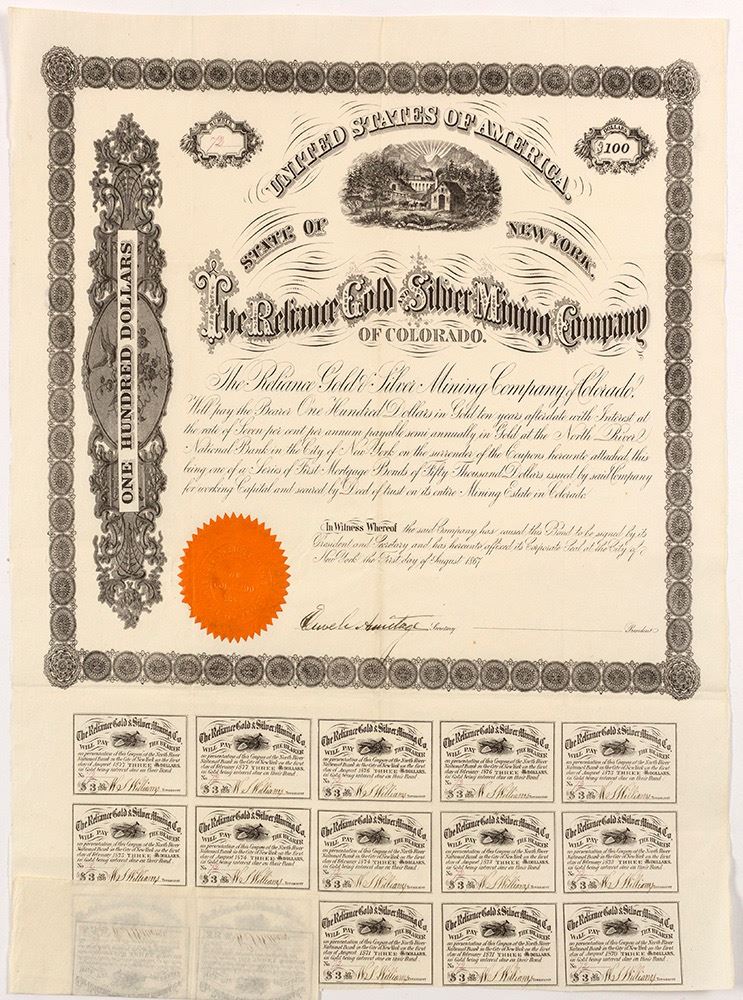 NUMBER
72
DOLLARS
$100
UNITED STATES OF AMERICA.
STATE OF NEW YORK.
The Reliance Gold & Silver Mining Company
OF COLORADO.
ONE HUNDRED DOLLARS
The Reliance Gold & Silver Mining Company of Colorado.
Will pay the Bearer One Hundred Dollars in Gold ten years after date with Interest at
the rate of Seven per cent per annum payable semi annually in Gold at the North River
National Bank in the City of New York on the surrender of the Coupons hereunto attached, this
being one of a Series of First Mortgage Bonds of Fifty Thousand Dollars issued by said Company
for working Capital and secured by Deed of trust on its entire Mining Estate in Colorado.
In Witness Whereof the said Company has caused this Bond to be signed by its
President and Secretary and has hereunto affixed its Corporate Seal at the City of
New York the First day of August 1867
Secretary
President
The Reliance Gold & Silver Mining Co.
WILL PAY THE BEARER
on presentation of this Coupon at the North River
National Bank in the City of New York on the first
day of August 1877 THREE 50/100 DOLLARS,
in Gold being interest due on their Bond
No.
$3 50/100 W S Williams TREASURER
The Reliance Gold & Silver Mining Co.
WILL PAY THE BEARER
on presentation of this Coupon at the North River
National Bank in the City of New York on the first
day of February 1877 THREE 50/100 DOLLARS,
in Gold being interest due on their Bond
No.
$3 50/100 W S Williams TREASURER
The Reliance Gold & Silver Mining Co.
WILL PAY THE BEARER
on presentation of this Coupon at the North River
National Bank in the City of New York on the first
day of August 1876 THREE 50/100 DOLLARS,
in Gold being interest due on their Bond
No.
$3 50/100 W S Williams TREASURER
The Reliance Gold & Silver Mining Co.
WILL PAY THE BEARER
on presentation of this Coupon at the North River
National Bank in the City of New York on the first
day of February 1876 THREE 50/100 DOLLARS,
in Gold being interest due on their Bond
No.
$3 50/100 W S Williams TREASURER
The Reliance Gold & Silver Mining Co.
WILL PAY THE BEARER
on presentation of this Coupon at the North River
National Bank in the City of New York on the first
day of August 1875 THREE 50/100 DOLLARS,
in Gold being interest due on their Bond
No.
$3 50/100 W S Williams TREASURER
The Reliance Gold & Silver Mining Co.
WILL PAY THE BEARER
on presentation of this Coupon at the North River
National Bank in the City of New York on the first
day of February 1875 THREE 50/100 DOLLARS,
in Gold being interest due on their Bond
No.
$3 50/100 W S Williams TREASURER
The Reliance Gold & Silver Mining Co.
WILL PAY THE BEARER
on presentation of this Coupon at the North River
National Bank in the City of New York on the first
day of August 1874 THREE 50/100 DOLLARS,
in Gold being interest due on their Bond
No.
$3 50/100 W S Williams TREASURER
The Reliance Gold & Silver Mining Co.
WILL PAY THE BEARER
on presentation of this Coupon at the North River
National Bank in the City of New York on the first
day of February 1874 THREE 50/100 DOLLARS,
in Gold being interest due on their Bond
No.
$3 50/100 W S Williams TREASURER
The Reliance Gold & Silver Mining Co.
WILL PAY THE BEARER
on presentation of this Coupon at the North River
National Bank in the City of New York on the first
day of August 1873 THREE 50/100 DOLLARS,
in Gold being interest due on their Bond
No.
$3 50/100 W S Williams TREASURER
The Reliance Gold & Silver Mining Co.
WILL PAY THE BEARER
on presentation of this Coupon at the North River
National Bank in the City of New York on the first
day of February 1873 THREE 50/100 DOLLARS,
in Gold being interest due on their Bond
No.
$3 50/100 W S Williams TREASURER
The Reliance Gold & Silver Mining Co.
WILL PAY THE BEARER
on presentation of this Coupon at the North River
National Bank in the City of New York on the first
day of August 1871 THREE 50/100 DOLLARS,
in Gold being interest due on their Bond
No.
$3 50/100 W S Williams TREASURER
The Reliance Gold & Silver Mining Co.
WILL PAY THE BEARER
on presentation of this Coupon at the North River
National Bank in the City of New York on the first
day of February 1871 THREE 50/100 DOLLARS,
in Gold being interest due on their Bond
No.
$3 50/100 W S Williams TREASURER
The Reliance Gold & Silver Mining Co.
WILL PAY THE BEARER
on presentation of this Coupon at the North River
National Bank in the City of New York on the first
day of August 1870 THREE 50/100 DOLLARS,
in Gold being interest due on their Bond
No.
$3 50/100 W S Williams TREASURER